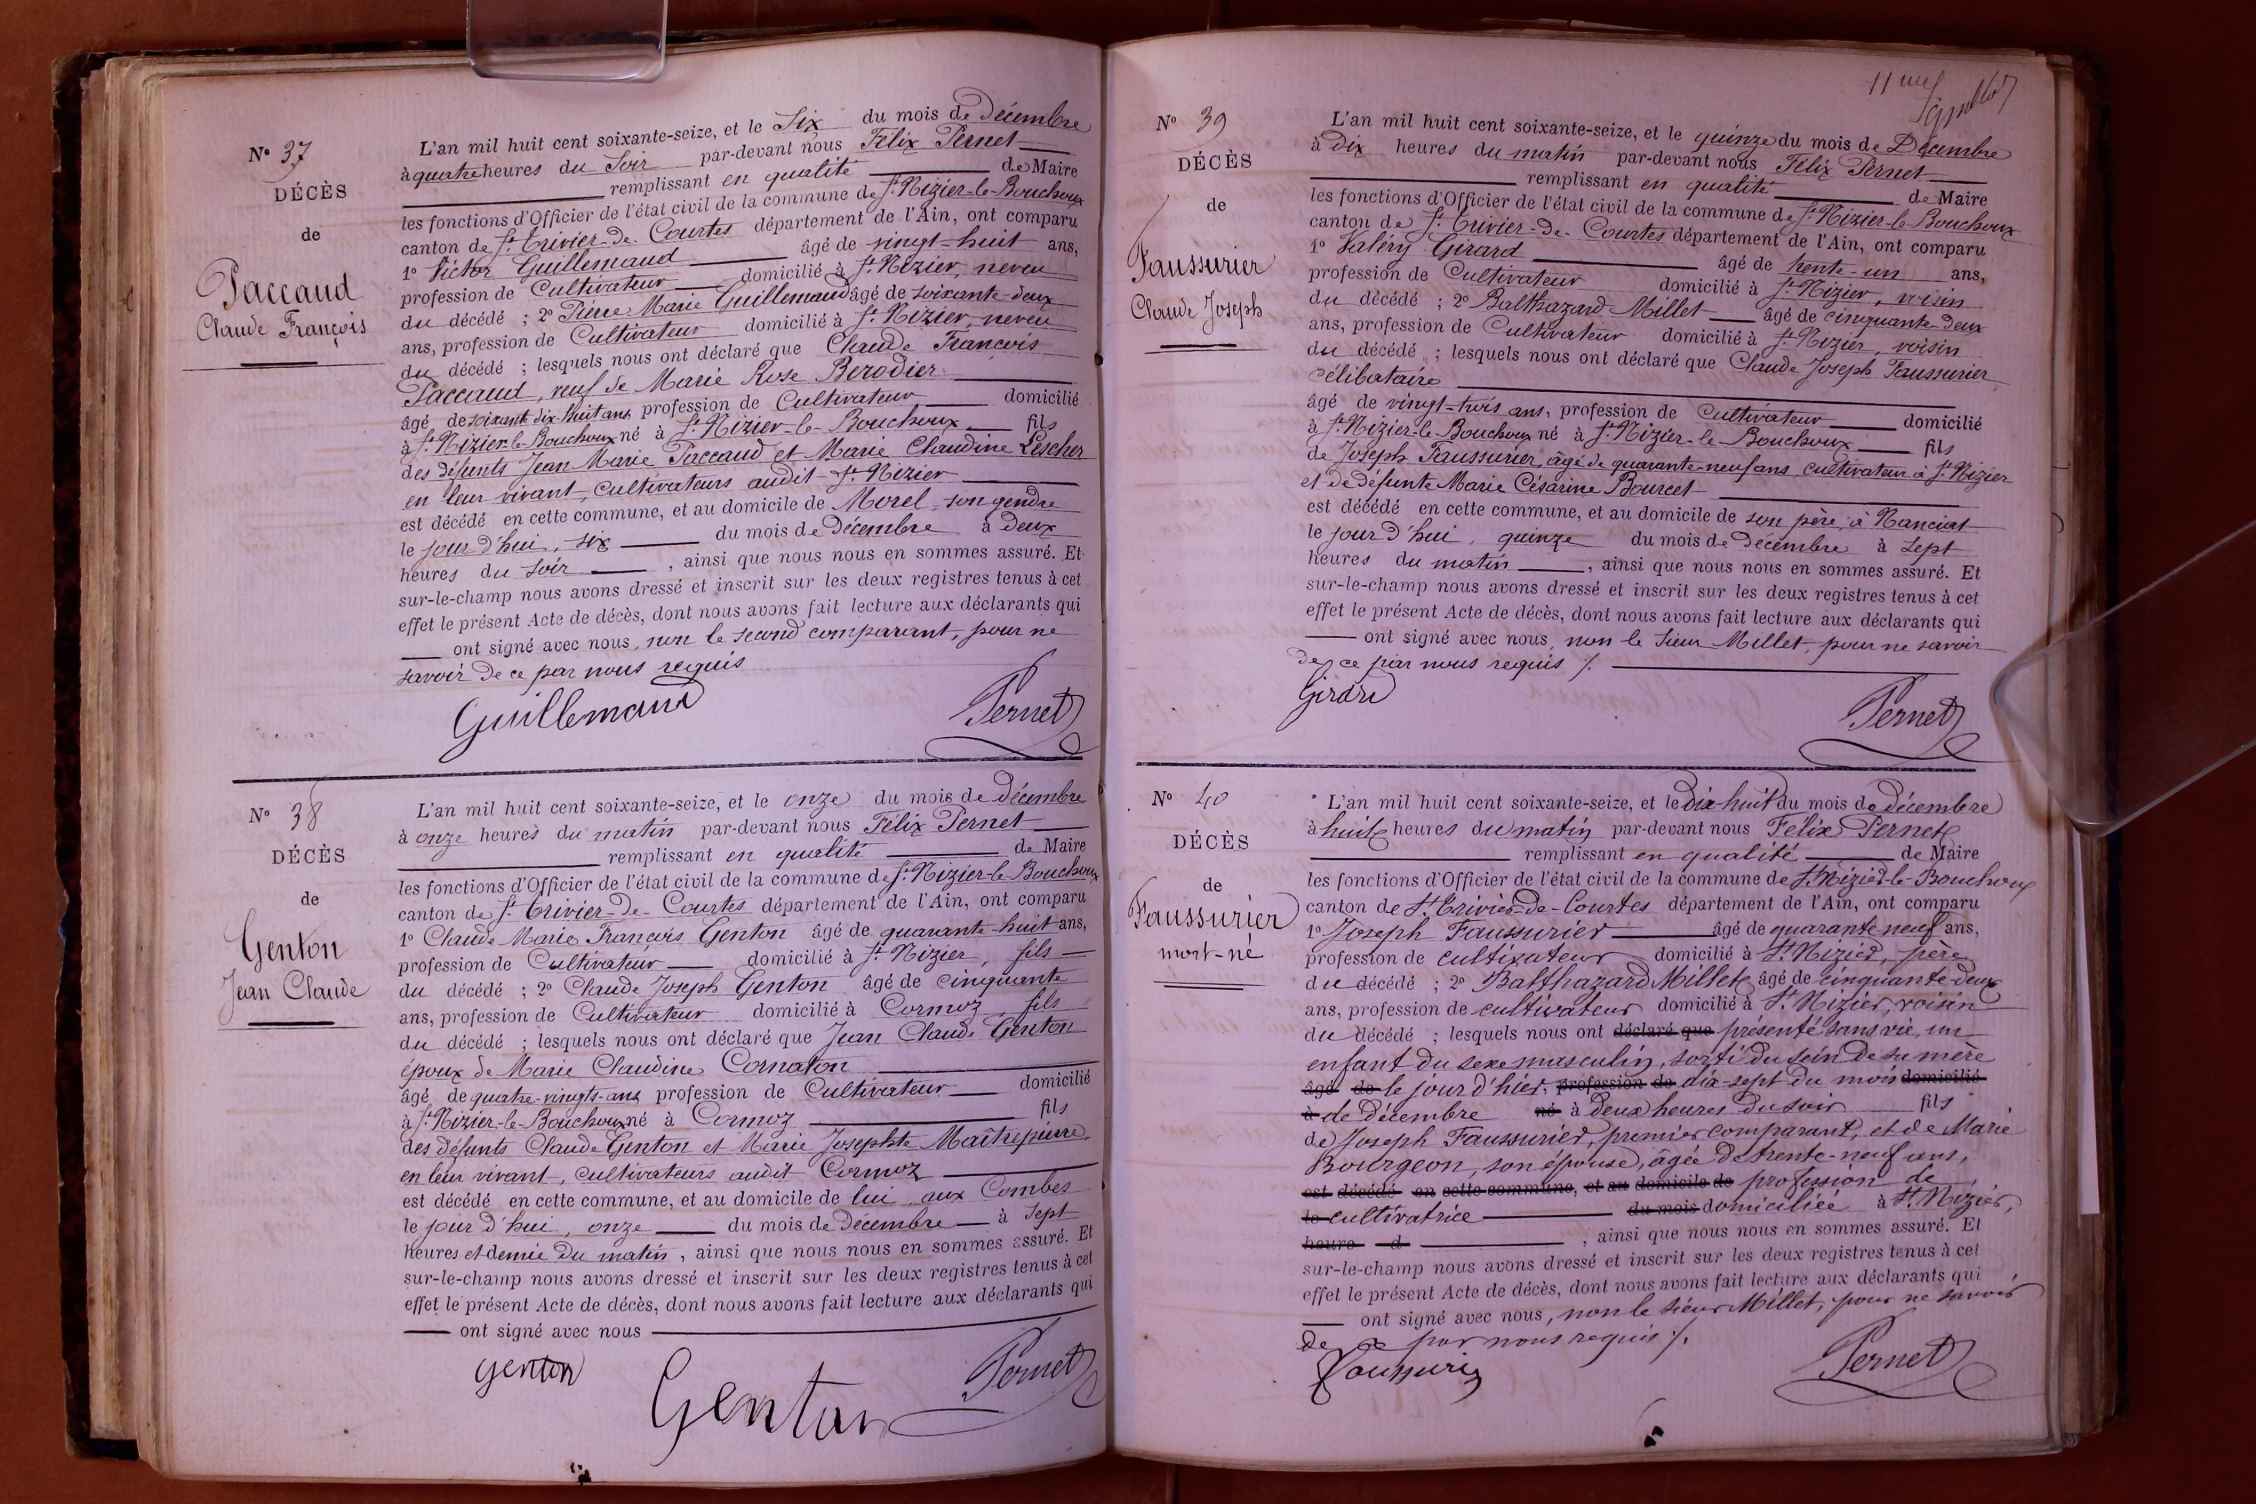 N° 37
DÉCÈS
de
Paccaud
Claude François
L'an mil huit cent soixante-seize, et le Six du mois de Décembre
à quatre heures du Soir par-devant nous Félix Pernet
remplissant en qualité de Maire
les fonctions d'Officier de l'état civil de la commune de St Nizier-le-Bouchoux
canton de St Trivier-de-Courtes département de l'Ain, ont comparu
1° Victor Guillemaud âgé de vingt-huit ans,
profession de Cultivateur domicilié à St Nizier, neveu
du décédé ; 2° Pierre Marie Guillemaud âgé de soixante-deux
ans, profession de Cultivateur domicilié à St Nizier, neveu
du décédé ; lesquels nous ont déclaré que Claude François
Paccaud, veuf de Marie Rose Berodier
âgé de soixante dix huit ans profession de Cultivateur domicilié
à St Nizier-le-Bouchoux né à St Nizier-le-Bouchoux fils
des défunts Jean Marie Paccaud et Marie Claudine Lescher
en leur vivant, cultivateurs audit St Nizier
est décédé en cette commune, et au domicile de Morel son gendre
le jour d'hui, six du mois de Décembre à deux
heures du soir, ainsi que nous nous en sommes assuré. Et
sur-le-champ nous avons dressé et inscrit sur les deux registres tenus à cet
effet le présent Acte de décès, dont nous avons fait lecture aux déclarants qui
ont signé avec nous, non le second comparant, pour ne
savoir de ce par nous requis
Guillemaud Pernet
N° 38
DÉCÈS
de
Genton
Jean Claude
L'an mil huit cent soixante-seize, et le onze du mois de décembre
à onze heures du matin par-devant nous Félix Pernet
remplissant en qualité de Maire
les fonctions d'Officier de l'état civil de la commune de St Nizier-le-Bouchoux
canton de St Trivier-de-Courtes département de l'Ain, ont comparu
1° Claude Marie François Genton âgé de quarante-huit ans,
profession de Cultivateur domicilié à St Nizier, fils
du décédé ; 2° Claude Joseph Genton âgé de cinquante
ans, profession de Cultivateur domicilié à Cormoz fils
du décédé ; lesquels nous ont déclaré que Jean Claude Genton
époux de Marie Claudine Cornaton
âgé de quatre-vingts-ans profession de Cultivateur domicilié
à St Nizier-le-Bouchoux né à Cormoz fils
des défunts Claude Genton et Marie Josephte Maîtrepierre
en leur vivant, cultivateurs audit Cormoz
est décédé en cette commune, et au domicile de lui aux Combes
le jour d'hui, onze du mois de décembre à sept
heures et demie du matin, ainsi que nous nous en sommes assuré. Et
sur-le-champ nous avons dressé et inscrit sur les deux registres tenus à cet
effet le présent Acte de décès, dont nous avons fait lecture aux déclarants qui
ont signé avec nous
genton Genton Pernet
11
N° 39
DÉCÈS
de
Faussurier
Claude Joseph
L'an mil huit cent soixante-seize, et le quinze du mois de Décembre
à dix heures du matin par-devant nous Félix Pernet
remplissant en qualité de Maire
les fonctions d'Officier de l'état civil de la commune de St Nizier-le-Bouchoux
canton de St Trivier-de-Courtes département de l'Ain, ont comparu
1° Valéry Girard âgé de trente-un ans,
profession de Cultivateur domicilié à St Nizier, voisin
du décédé ; 2° Balthazard Millet âgé de cinquante-deux
ans, profession de Cultivateur domicilié à St Nizier, voisin
du décédé ; lesquels nous ont déclaré que Claude Joseph Faussurier
célibataire
âgé de vingt-trois ans, profession de Cultivateur domicilié
à St Nizier-le-Bouchoux né à St Nizier-le-Bouchoux fils
de Joseph Faussurier, âgé de quarante-neuf ans, cultivateur à St Nizier
et de défunte Marie Césarine Bourcet
est décédé en cette commune, et au domicile de son père, à Nanciat
le jour d'hui, quinze du mois de décembre à sept
heures du matin, ainsi que nous nous en sommes assuré. Et
sur-le-champ nous avons dressé et inscrit sur les deux registres tenus à cet
effet le présent Acte de décès, dont nous avons fait lecture aux déclarants qui
ont signé avec nous, non le sieur Millet, pour ne savoir
de ce par nous requis /.
Girard Pernet
N° 40
DÉCÈS
de
Faussurier
mort-né
L'an mil huit cent soixante-seize, et le dix huit du mois de décembre
à huit heures du matin par-devant nous Félix Pernet
remplissant en qualité de Maire
les fonctions d'Officier de l'état civil de la commune de St Nizier-le-Bouchoux
canton de St Trivier-de-Courtes département de l'Ain, ont comparu
1° Joseph Faussurier âgé de quarante neuf ans,
profession de cultivateur domicilié à St Nizier, père
du décédé ; 2° Balthazard Millet âgé de cinquante-deux
ans, profession de cultivateur domicilié à St Nizier, voisin
du décédé ; lesquels nous ont déclaré que présenté sans vie, un
enfant du sexe masculin, sorti du sein de sa mère
âgé de le jour d'hier, profession de dix-sept du mois domicilié
à de décembre né à deux heures du soir fils
de Joseph Faussurier, premier comparant, et de Marie
Bourgeon, son épouse, âgée de trente-neuf ans,
est décédé en cette commune, et au domicile de profession de
le cultivatrice du mois domiciliée à St Nizier,
heure d, ainsi que nous nous en sommes assuré. Et
sur-le-champ nous avons dressé et inscrit sur les deux registres tenus à cet
effet le présent Acte de décès, dont nous avons fait lecture aux déclarants qui
ont signé avec nous, non le sieur Millet, pour ne savoir
de ce par nous requis /.
Faussurier Pernet